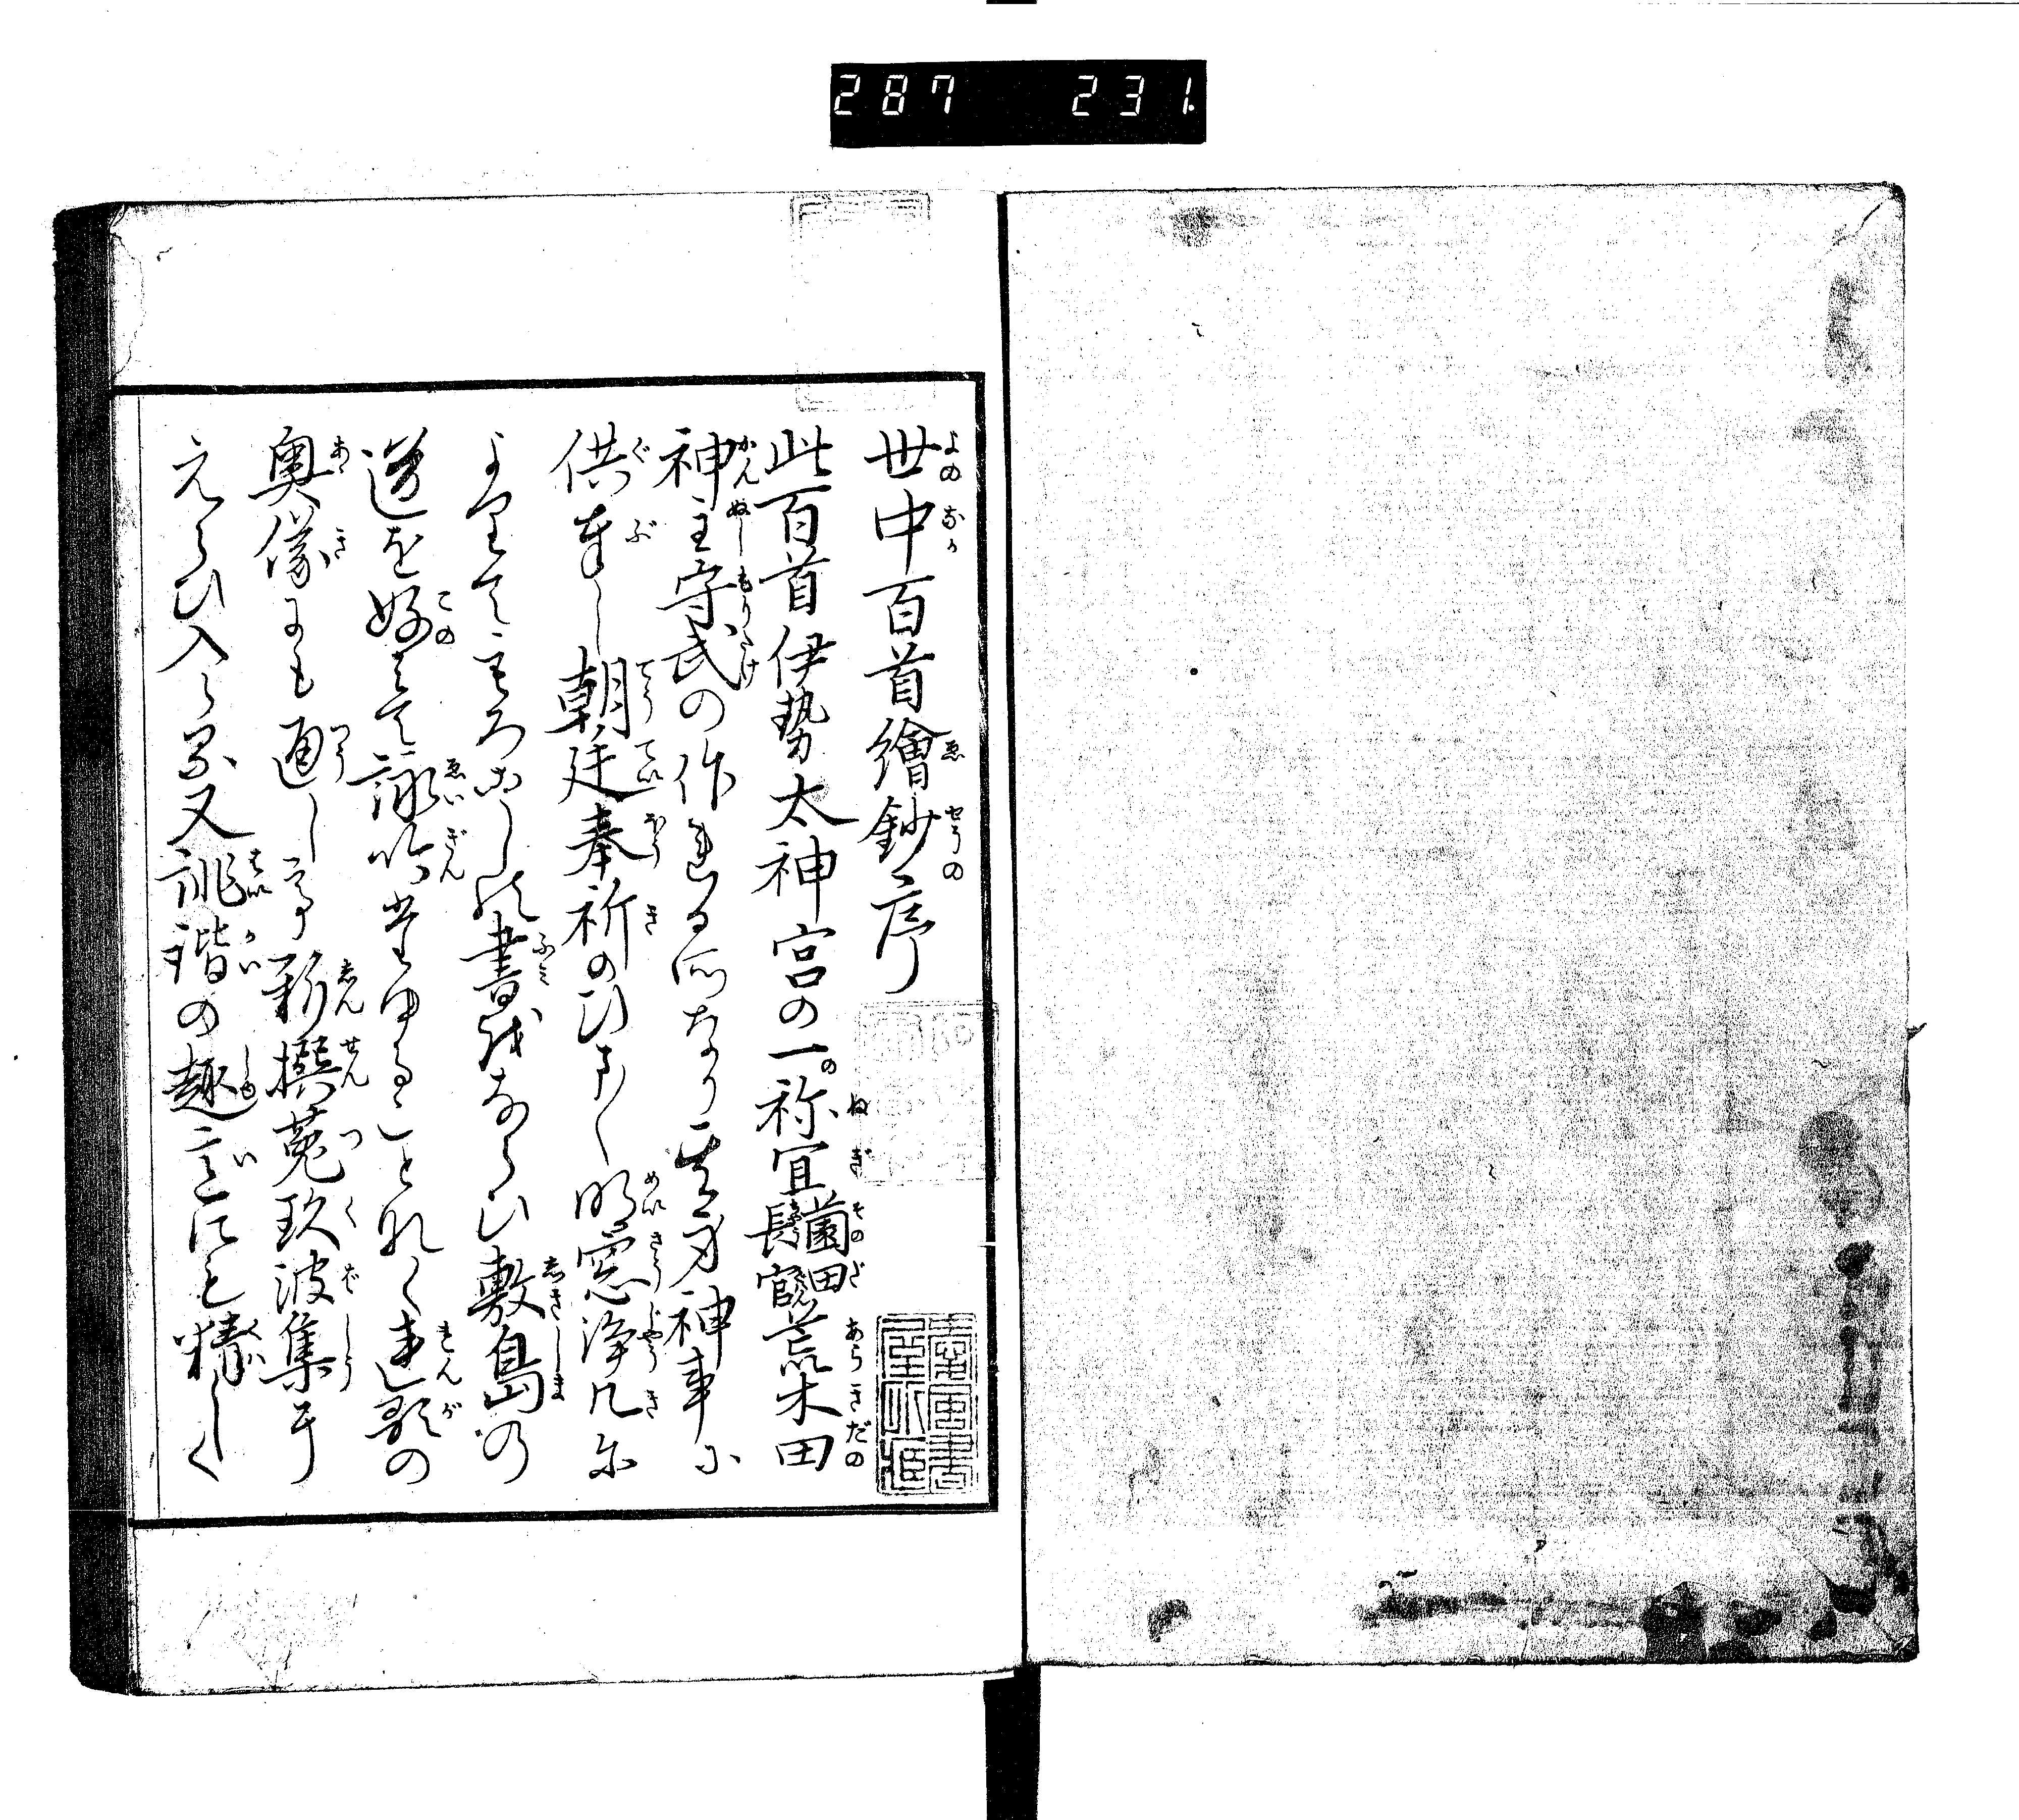 287 231
世中百首繪鈔序
此百首伊勢太神宮の一祢宜薗田長官荒木田
神主守武の作れる所なり其身神事に
供奉し朝廷奉祈のひまく明窓浄几に
よりてもろこしの書をならひ敷島の
道を好みて詠吟たゆることなく連歌の
奥儀にも通し新撰菟玖波集に
えらひ入らる又誹諧の趣にも精しく